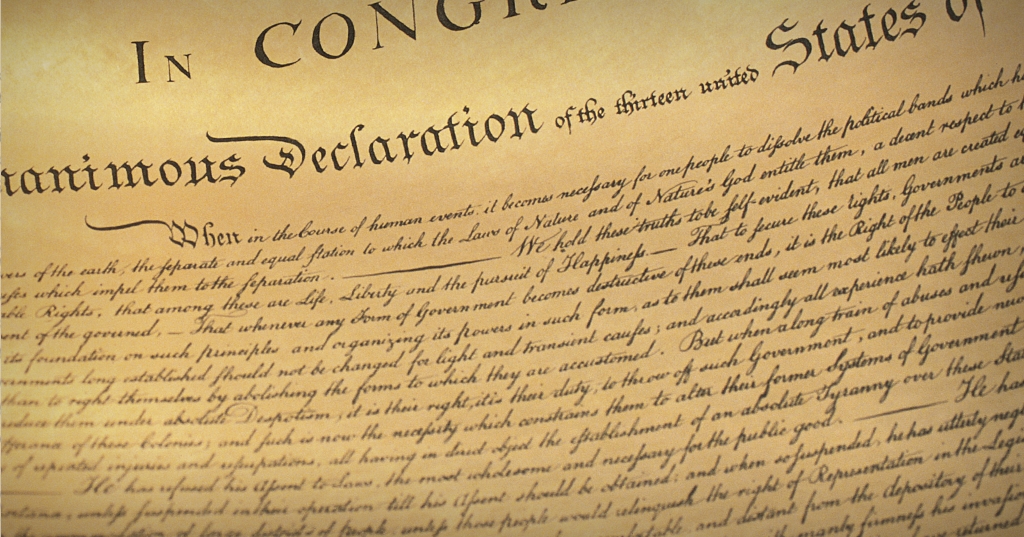 IN CONGR
nanimous Declaration of the thirteen united States of
When in the Course of human events, it becomes necessary for one people to dissolve the political bands which h
wers of the earth, the separate and equal station to which the Laws of Nature and of Nature's God entitle them, a decent respect to
ses which impel them to the separation. — We hold these truths to be self-evident, that all men are created e
able Rights, that among these are Life, Liberty and the pursuit of Happiness. — That to secure these rights, Governments ar
ent of the governed, — That whenever any Form of Government becomes destructive of these ends, it is the Right of the People to
its foundation on such principles and organizing its powers in such form, as to them shall seem most likely to effect their
ernments long established should not be changed for light and transient causes; and accordingly all experience hath shewn,
than to right themselves by abolishing the forms to which they are accustomed. But when a long train of abuses and usu
reduce them under absolute Despotism, it is their right, it is their duty, to throw off such Government, and to provide new
fferance of these Colonies; and such is now the necessity which constrains them to alter their former Systems of Government
of repeated injuries and usurpations, all having in direct object the establishment of an absolute Tyranny over these Stat
— He has refused his Assent to Laws, the most wholesome and necessary for the public good. — He has
ortance, unless suspended in their operation till his Assent should be obtained; and when so suspended, he has utterly negl
commodation of large districts of people, unless those people would relinquish the right of Representation in the Legis
and distant from the depository of their
with manly firmness his invasion
have returned